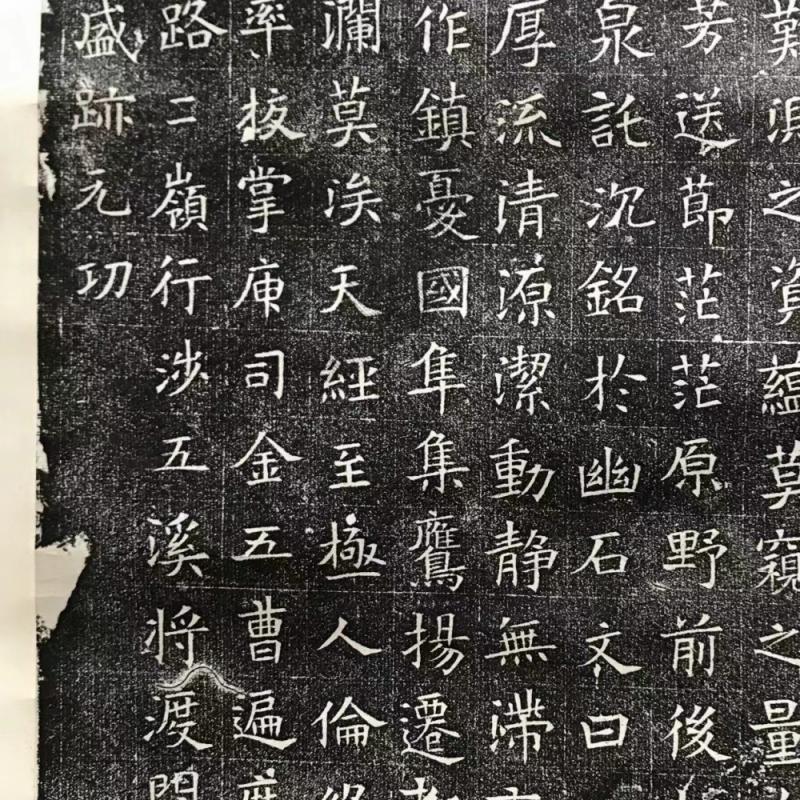 難之資蘊莫窺之量
芳送莭茫茫原野前後
泉託沉銘於幽石文曰
厚流清源潔動静無滯
作鎮憂國隼集鷹揚遷
瀾莫涘天經至極人倫
率挍掌庫司金五曹遍
路二嶺行涉五溪將渡
盛跡元功